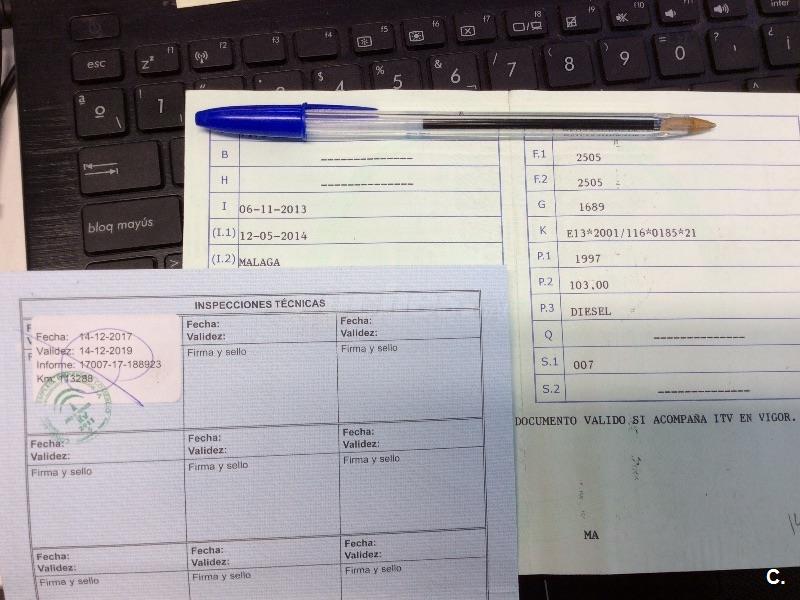 f1
f2
f3
f4
f5
f6
f7
f8
f9
f10
f11
f12
esc
zz
$ 4
% 5
& 6
/ 7
( 8
) 9
= 0
? '
¿ ¡
inter
ª º \
! 1
bloq mayús
>
B --------------
H --------------
I 06-11-2013
(I.1) 12-05-2014
(I.2) MALAGA
F.1 2505
F.2 2505
G 1689
K E13*2001/116*0185*21
P.1 1997
P.2 103,00
P.3 DIESEL
Q --------------
S.1 007
S.2 --------------
DOCUMENTO VALIDO SI ACOMPAÑA ITV EN VIGOR.
MA
INSPECCIONES TÉCNICAS
Fecha: 14-12-2017
Validez: 14-12-2019
Informe: 17007-17-188923
Km: 113288
Fecha:
Validez:
Firma y sello
Fecha:
Validez:
Firma y sello
Fecha:
Validez:
Firma y sello
Fecha:
Validez:
Firma y sello
Fecha:
Validez:
Firma y sello
Fecha:
Validez:
Firma y sello
Fecha:
Validez:
Firma y sello
Fecha:
Validez:
Firma y sello
C.